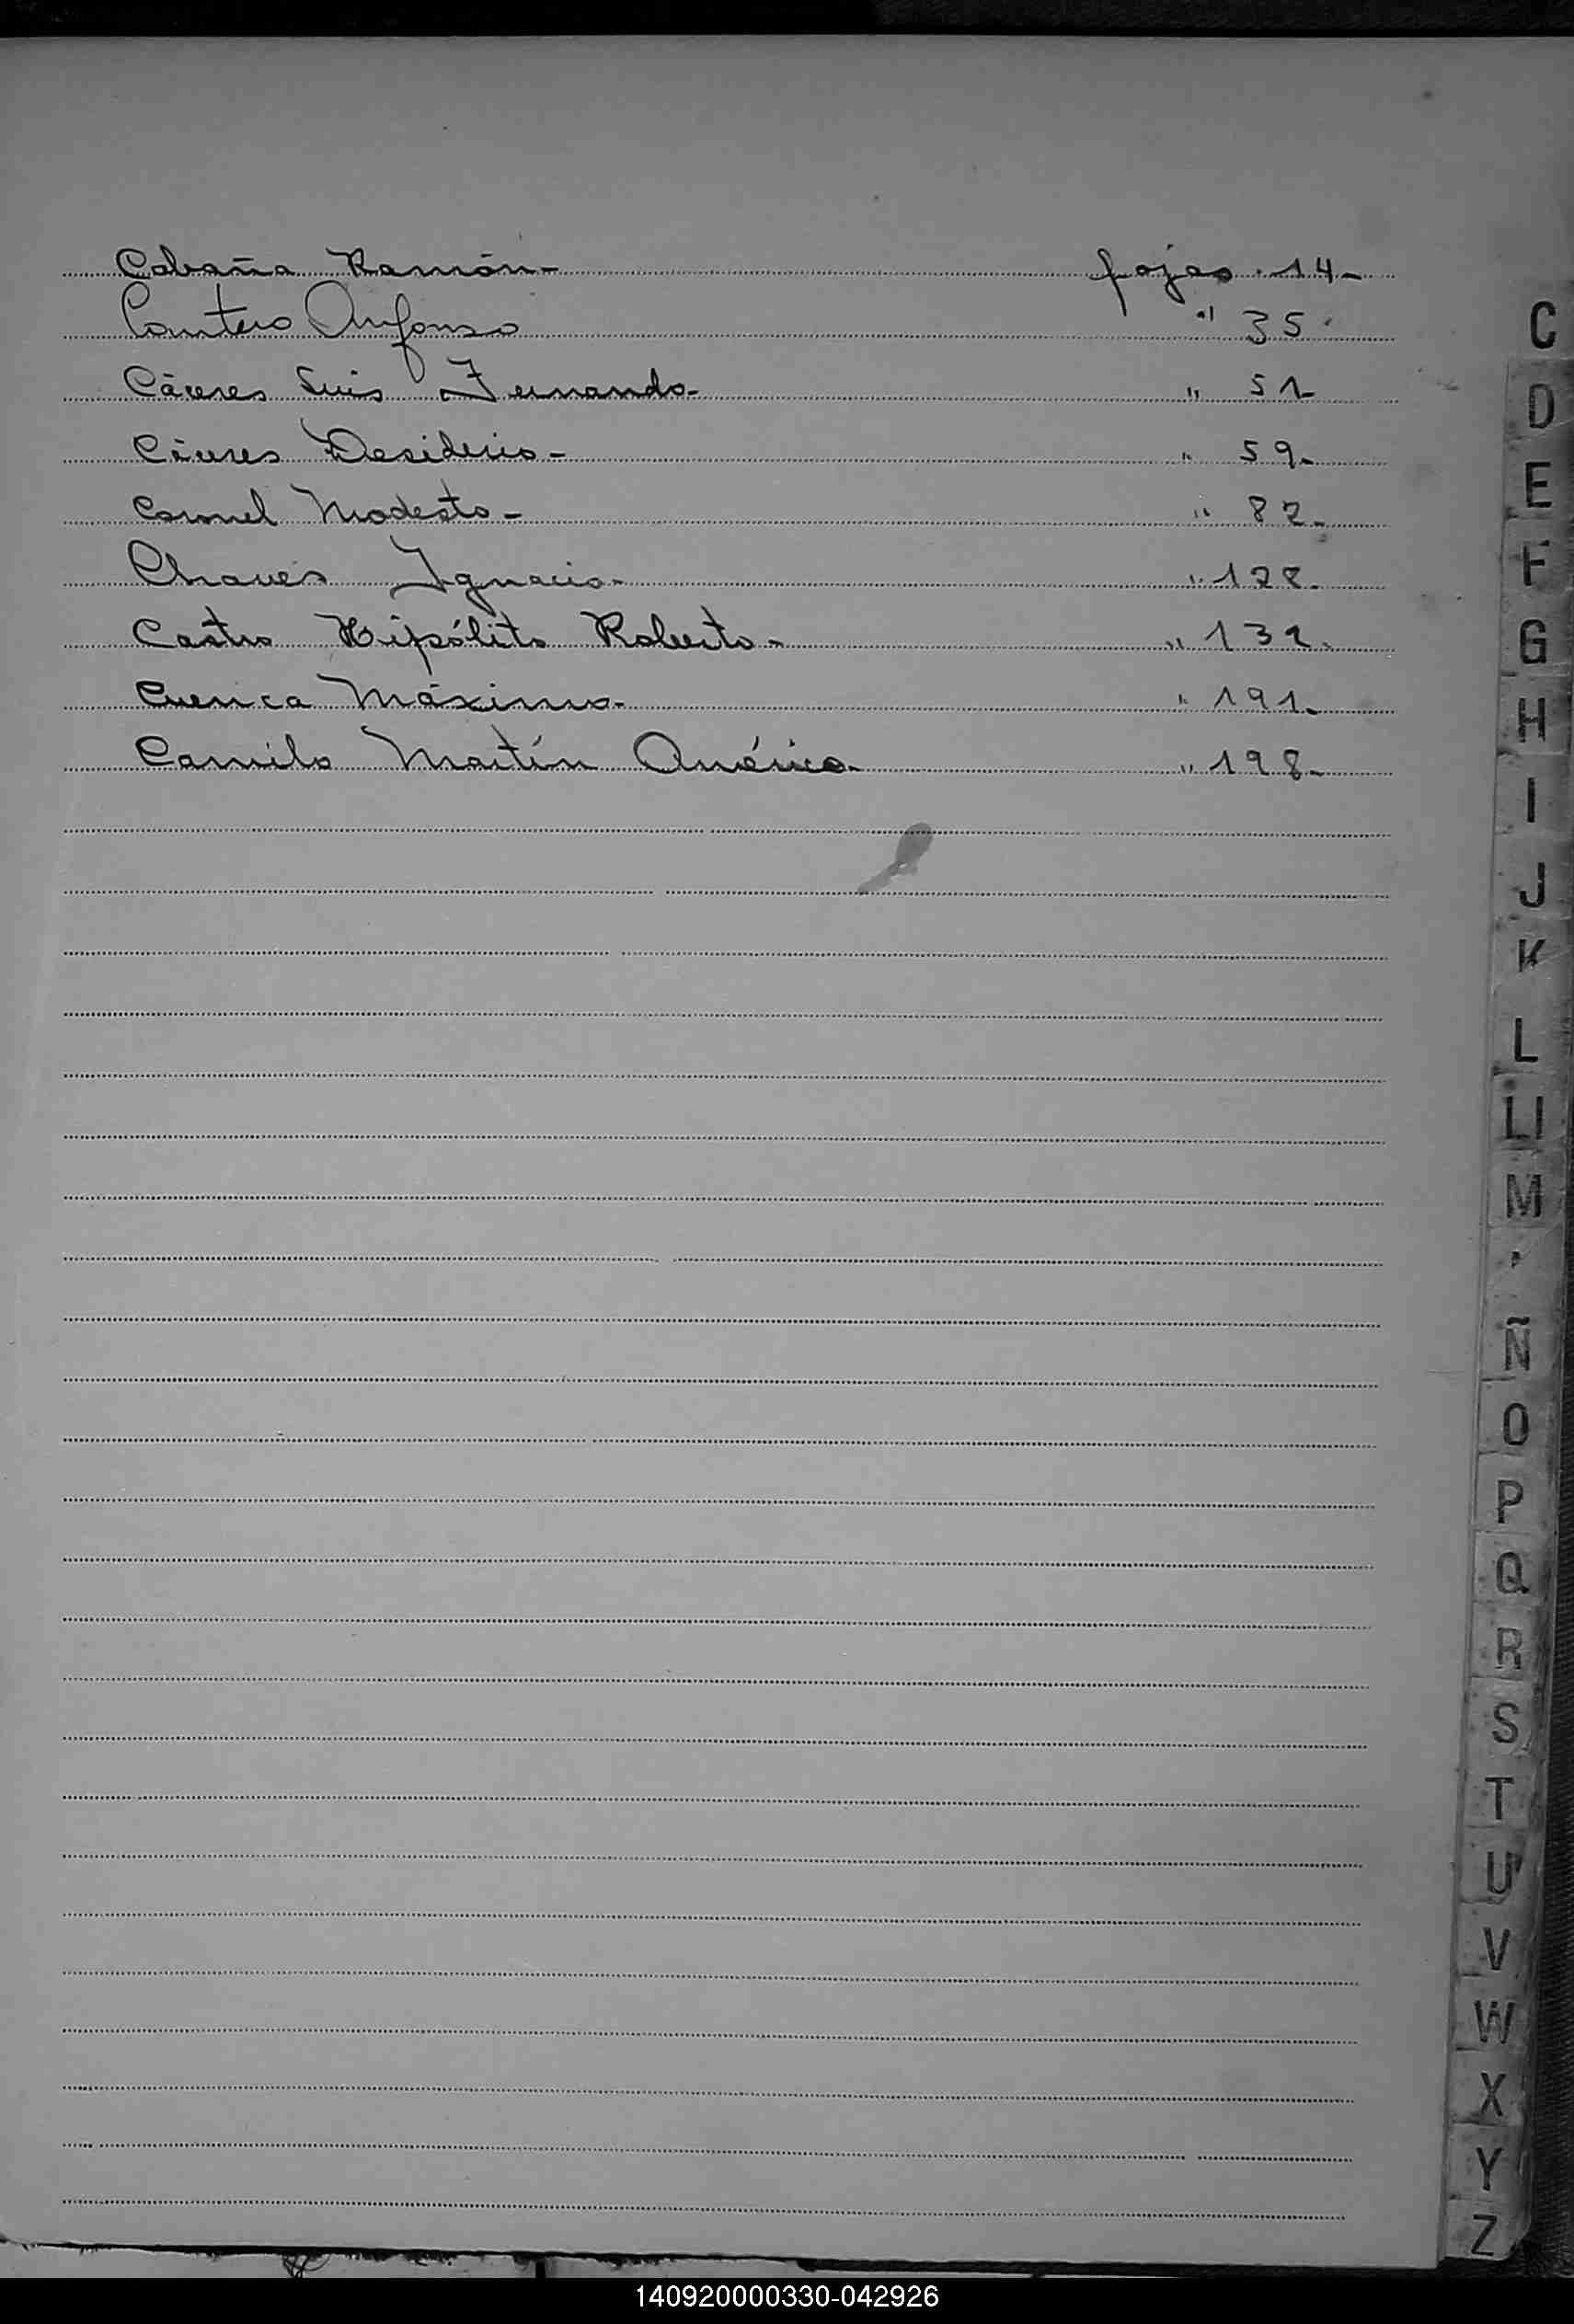 Cabaña Ramón- fojas 14-
Cantero Anfonso " 35
Cáceres Luis Fernando- " 51-
Cáceres Desiderio- " 59-
Coronel Modesto- " 82-
Chaves Ignacio- " 128-
Castro Hipólito Roberto- " 132-
Cuenca Máximo- " 191-
Camilo Martín Américo- " 198-
C
D
E
F
G
H
I
J
K
L
Ll
M
Ñ
O
P
Q
R
S
T
U
V
W
X
Y
Z
140920000330-042926